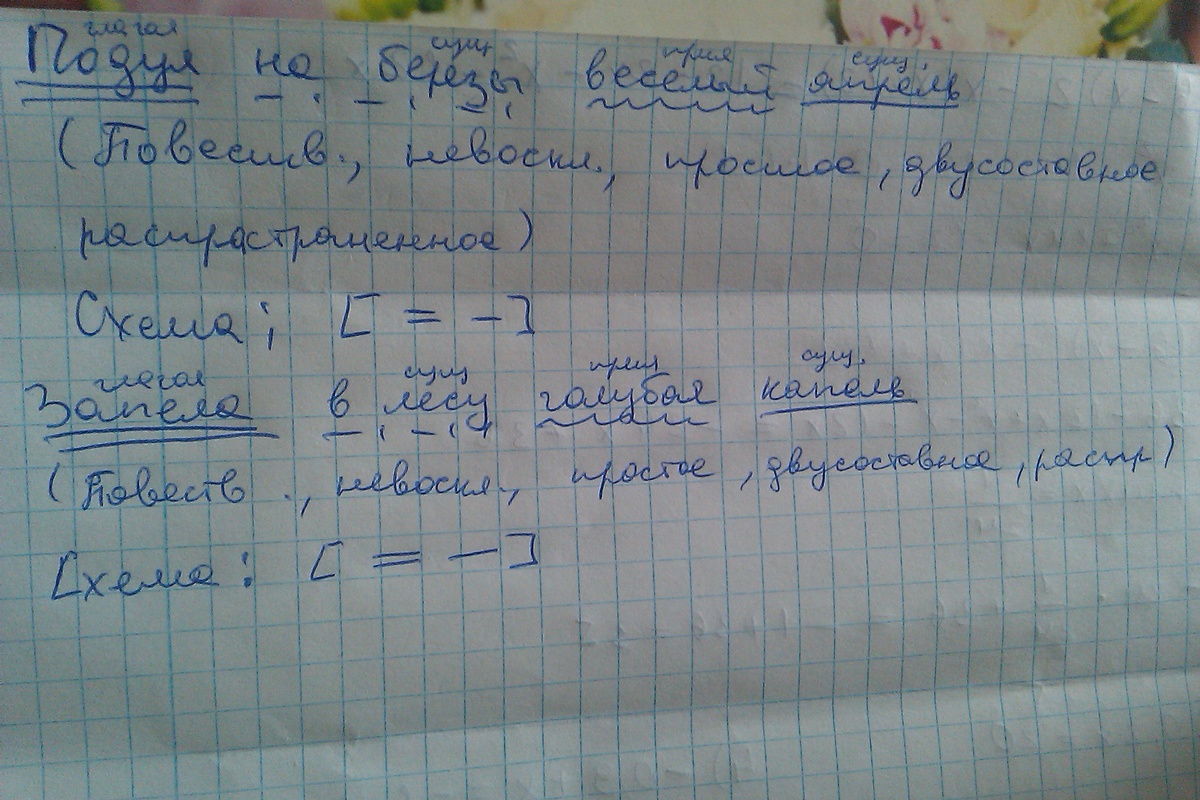 глагол сущ прил сущ.
Подул на березы веселый апрель
(Повеств., невоскл., простое, двусоставное
распрастраненное)
Схема; [ = - ]
глагол сущ прил сущ.
Запела в лесу голубая капель
(Повеств., невоскл., простое, двусоставное, распр)
Схема: [ = - ]